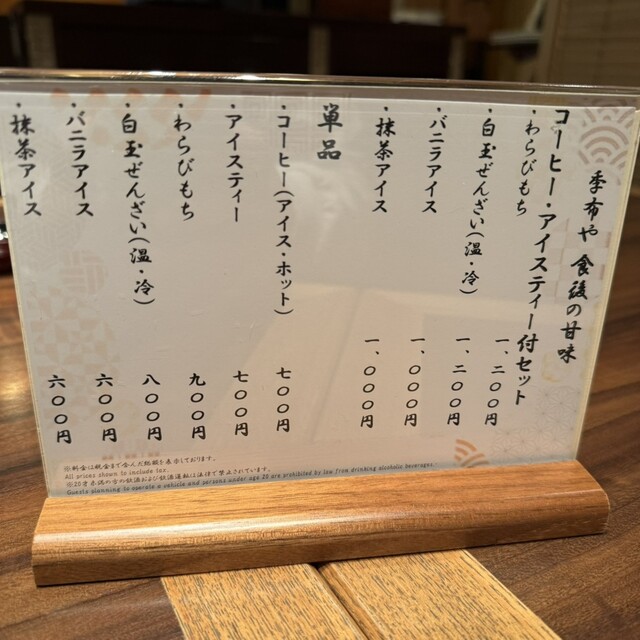 季布や 食後の甘味
コーヒー・アイスティー付セット
・わらびもち 一、二〇〇円
・白玉ぜんざい(温・冷) 一、二〇〇円
・バニラアイス 一、〇〇〇円
・抹茶アイス 一、〇〇〇円
単品
・コーヒー(アイス・ホット) 七〇〇円
・アイスティー 七〇〇円
・わらびもち 九〇〇円
・白玉ぜんざい(温・冷) 八〇〇円
・バニラアイス 六〇〇円
・抹茶アイス 六〇〇円
※料金は税金まで含んだ総額を表示しております。
All prices shown to include tax.
※20才未満の方の飲酒および飲酒運転は法律で禁止されています。
Guests planning to operate a vehicle and persons under age 20 are prohibited by law from drinking alcoholic beverages.